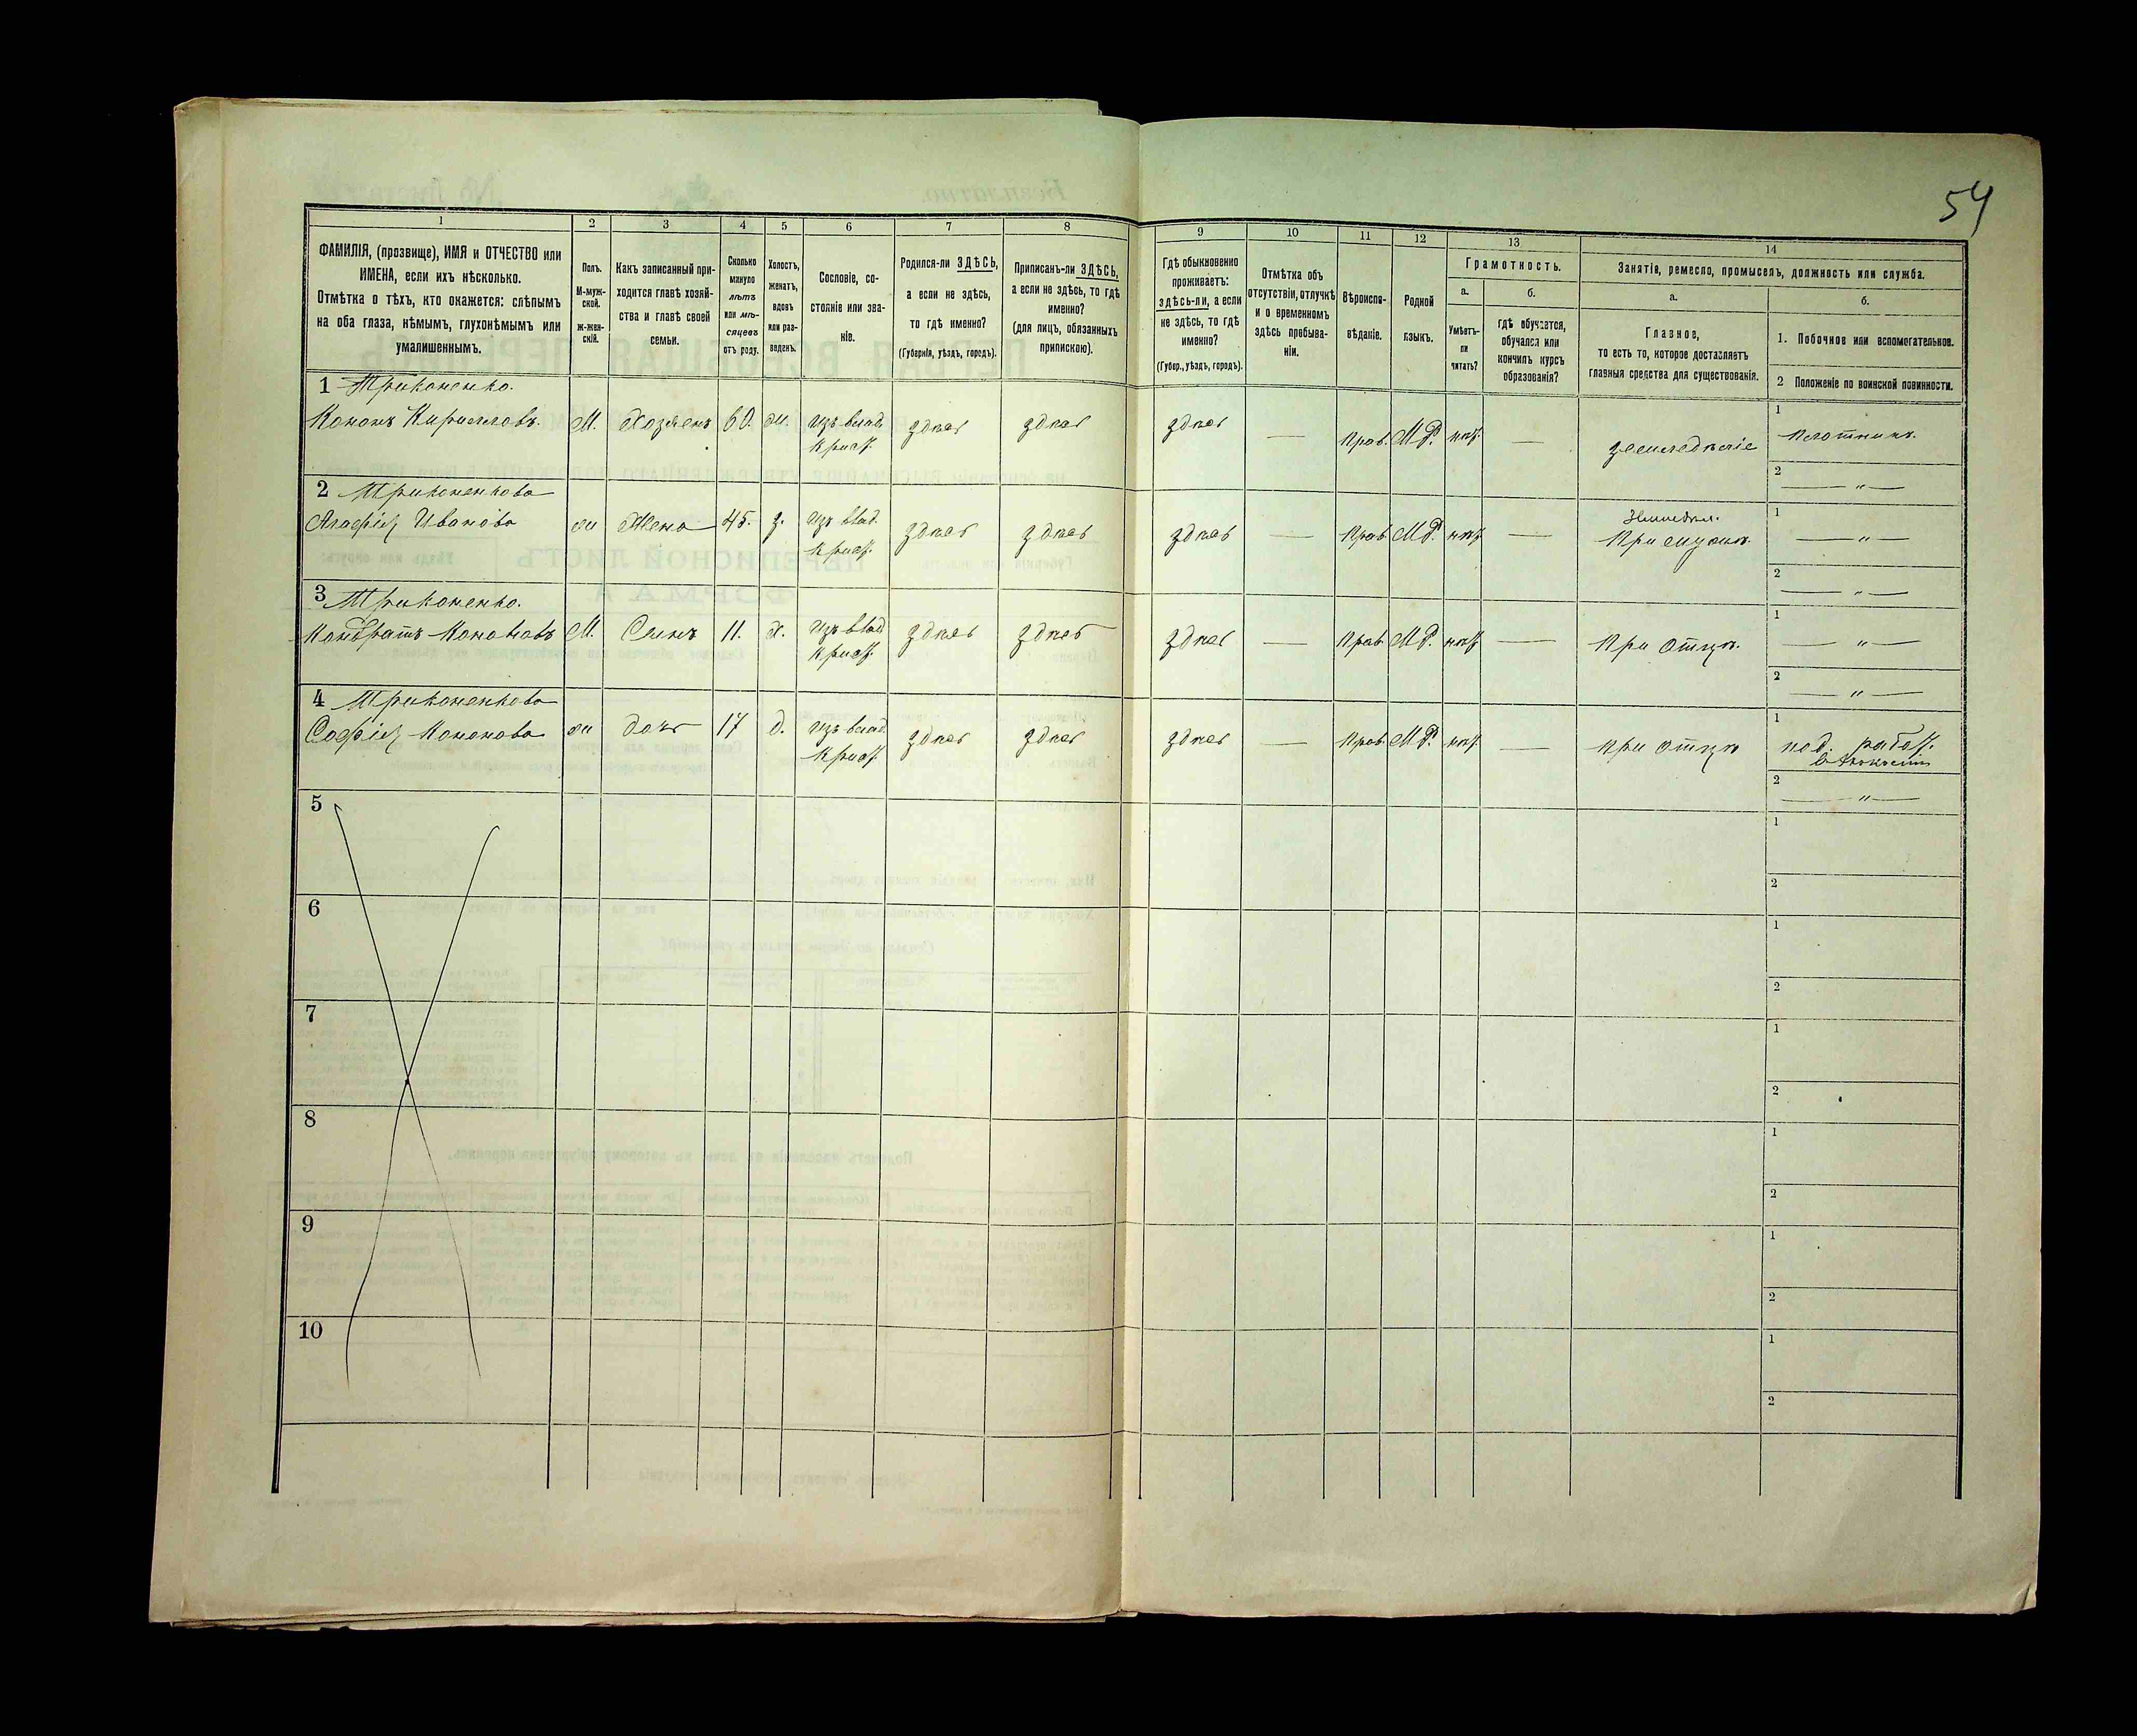 54
1
2
3
4
5
6
7
8
9
10
11
12
13
14
ФАМИЛІЯ, (прозвище), ИМЯ и ОТЧЕСТВО или
ИМЕНА, если ихъ нѣсколько.
Отмѣтка о тѣхъ, кто окажется: слѣпымъ
на оба глаза, нѣмымъ, глухонѣмымъ или
умалишеннымъ.
Полъ.
М-муж-
ской.
Ж-жен-
скій.
Какъ записанный при-
ходится главѣ хозяй-
ства и главѣ своей
семьи.
Сколько
минуло
лѣтъ
или мѣ-
сяцевъ
отъ роду.
Холостъ,
женатъ,
вдовъ
или раз-
веденъ.
Сословіе, со-
стояніе или зва-
ніе.
Родился-ли ЗДѢСЬ,
а если не здѣсь,
то гдѣ именно?
(Губернія, уѣздъ, городъ).
Приписанъ-ли ЗДѢСЬ,
а если не здѣсь, то гдѣ
именно?
(для лицъ, обязанныхъ
припискою).
Гдѣ обыкновенно
проживаетъ:
здѣсь-ли, а если
не здѣсь, то гдѣ
именно?
(Губер., уѣздъ, городъ).
Отмѣтка объ
отсутствіи, отлучкѣ
и о временномъ
здѣсь пребыва-
ніи.
Вѣроиспо-
вѣданіе.
Родной
языкъ.
Грамотность.
а.
Умѣетъ-
ли
читать?
б.
гдѣ обучается,
обучался или
кончилъ курсъ
образованія?
Занятія, ремесло, промыселъ, должность или служба.
а.
Главное,
то есть то, которое доставляетъ
главныя средства для существованія.
б.
1. Побочное или вспомогательное.
2 Положеніе по воинской повинности.
1 Триконенко.
Кононъ Кирилловъ. М. Хозяинъ 60. ж. изъ влад. здѣсь здѣсь здѣсь — Прав. М.Р. нѣт. — земледѣліе 1 плотникъ.
крест.
2 — " —
2 Триконенкова
Агафія Иванова ж Жена 45. з. изъ влад. здѣсь здѣсь здѣсь — Прав. М.Р. нѣт. — Земледѣл. 1 — " —
крест. При мужѣ.
2 — " —
3 Триконенко.
Кондратъ Кононовъ М. Сынъ 11. х. изъ влад. здѣсь здѣсь здѣсь — Прав. М.Р. нѣт. — При отцѣ. 1 — " —
крест.
2 — " —
4 Триконенкова
Софія Кононова ж дочь 17 д. изъ влад. здѣсь здѣсь здѣсь — Прав. М.Р. нѣт. — при отцѣ 1 под. работ.
крест.
2 — " —
5 1
2
6 1
2
7 1
2
8 1
2
9 1
2
10 1
2